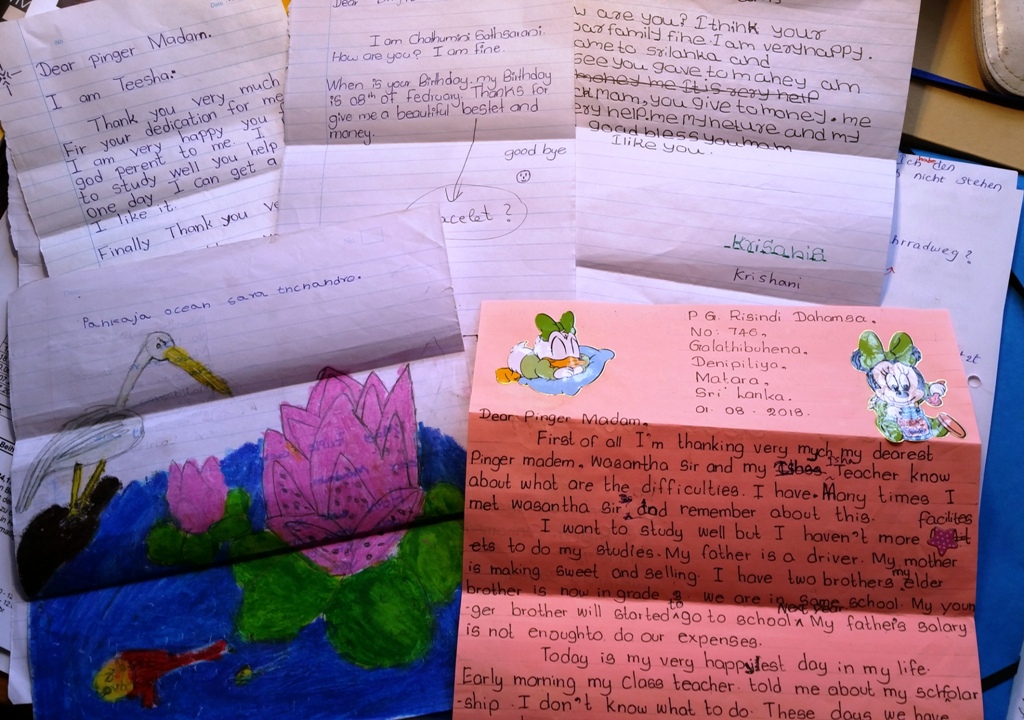 Dear Pinger Madam.
I am Teesha.
Thank you very much
Fir your dedication for me
I am very happy you
god perent to me. I
to study well you help
One day I can get a
I like it.
Finally Thank you ve
Dear
I am Chathumini Sathsarani.
How are you? I am fine.
When is your Birthday. my Birthday
is 08th of fedruary. Thanks for
give me a beautiful beslet and
money.
good bye
acelet ?
w are you? I think your
par family fine. I am very happy.
ame to srilanka and
see you gave to mahey am
money me It is very help
ck mam, you give to money. me
ery help. me my heture and my
good bless you mam
I like you.
Krishani
Ich habe den
nicht stehen
hrradweg?
tzt
Pankaja ocean sara thchandro.
P G. Risindi Dahamsa.
No: 746,
Galathibuhena,
Denipitiya,
Matara,
Sri Lanka.
01. 08. 2018.
Dear Pinger Madam.
First of all I'm thanking very mych my dearest
Pinger madem. Wasantha Sir and my Ish Teacher know
about what are the difficulties. I have. Many times I
met wasantha sir and remember about this.
facilites
I want to study well but I haven't more
ets to do my studies. My father is a driver. My mother
is making sweet and selling. I have two brothers my elder
brother is now in grade 3. we are in same school. My youn
-ger brother will started to go to school Next year My father's salary
is not enoughto do our expenses.
Today is my very happyest day in my life.
Early morning my class teacher told me about my scholar
-ship. I don't know what to do. These days we have